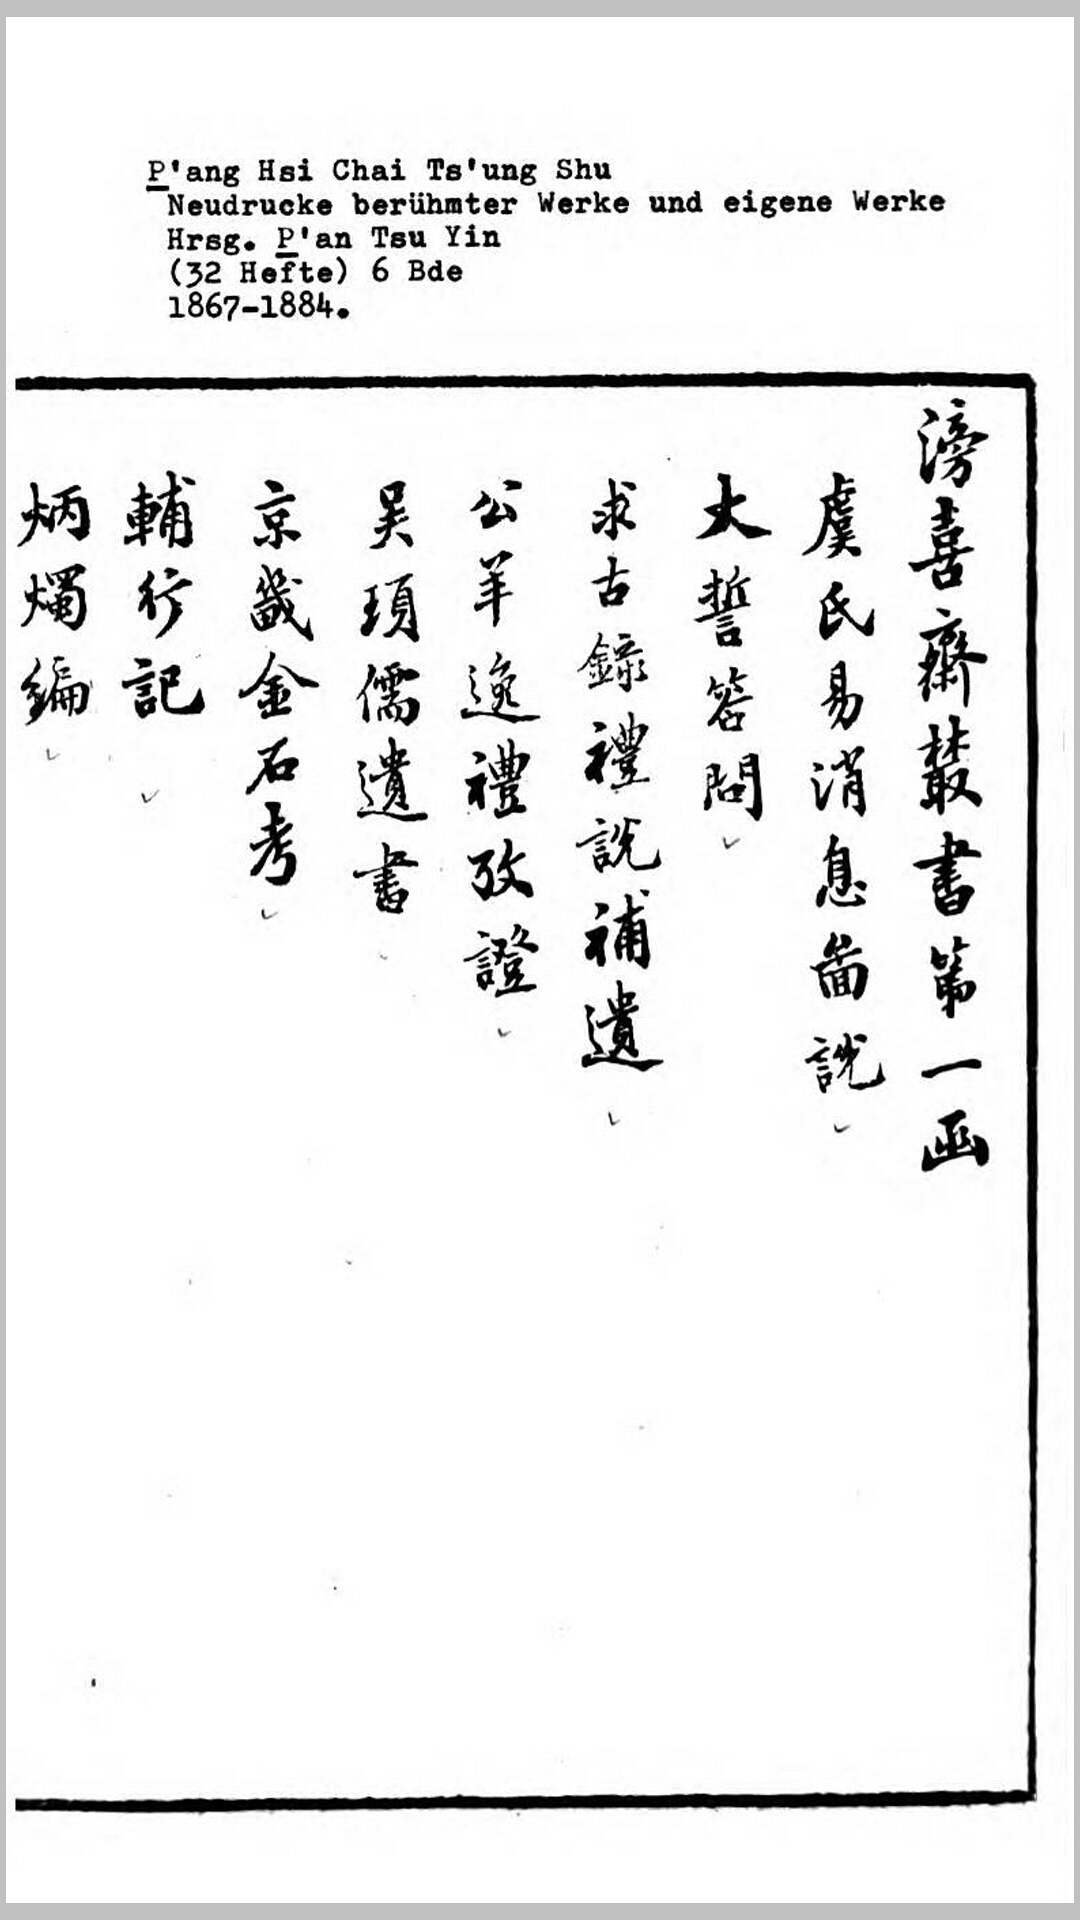 P'ang Hsi Chai Ts'ung Shu
Neudrucke berühmter Werke und eigene Werke
Hrsg. P'an Tsu Yin
(32 Hefte) 6 Bde
1867-1884.
滂喜齋叢書第一函
虞氏易消息啚說
大誓答問
求古錄禮說補遺
公羊逸禮攷證
吳頊儒遺書
京畿金石考
輔行記
炳燭編